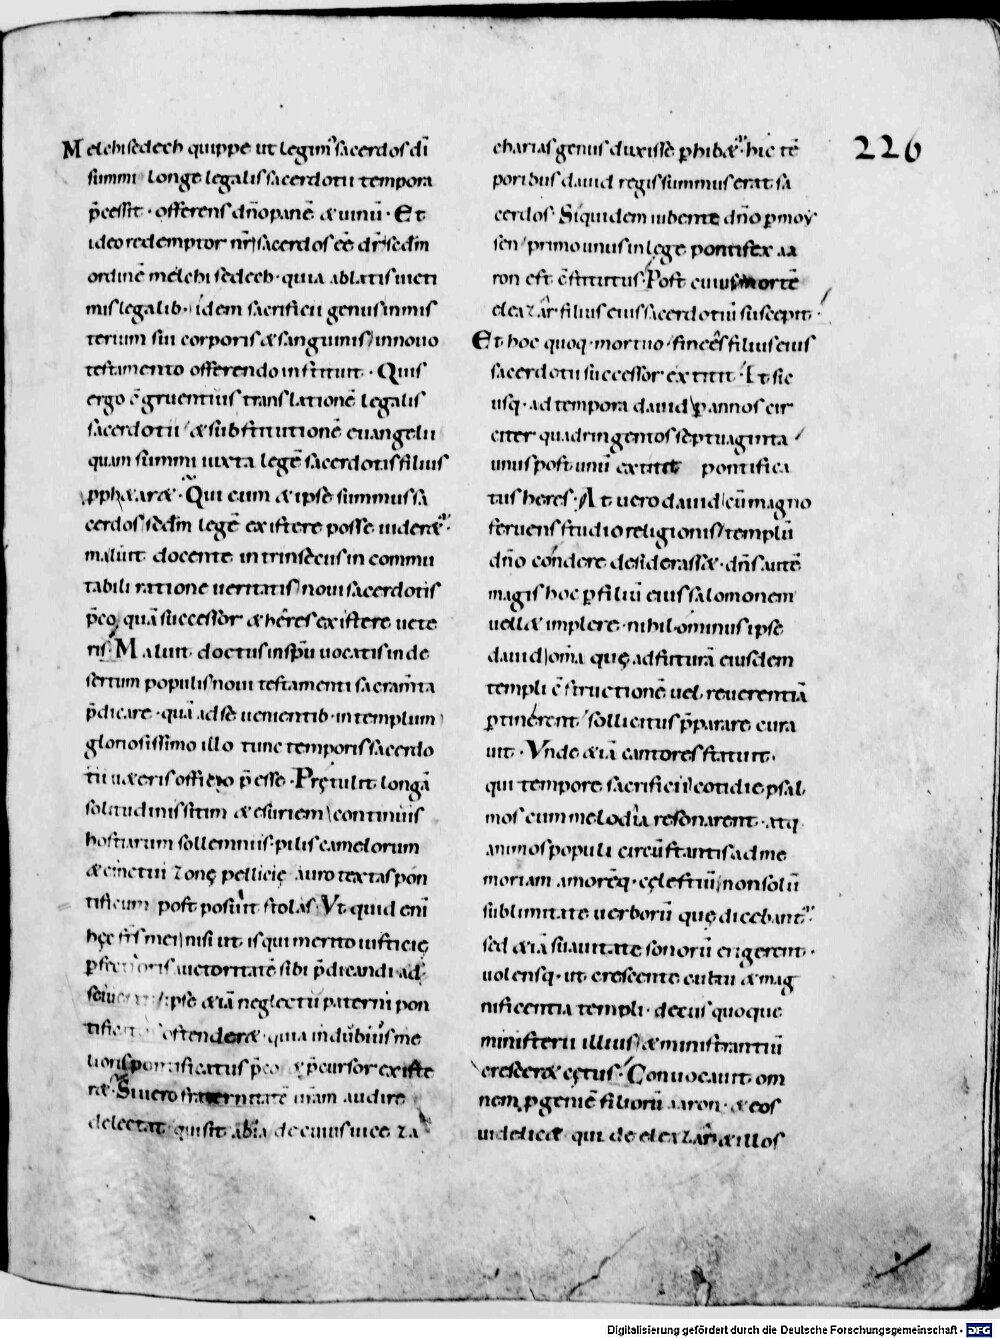 226
Melchisedech quippe ut legim᾽ sacerdos dī
summi longe legalis sacerdotii tempora
p̄cessit · offerens dn̄o panē & uinū · Et
ideo redemptor nr̄ sacerdos eē dr̄ sedm̄
ordinē melchisedech · quia ablatis uicti
mis legalib · idem sacrificii genus in mis
terium sui corporis & sanguinis in nouo
testamento offerendo instituit · Quis
ergo c̄gruentius translationē legalis
sacerdotii & substitutionē euangelii
quam summi iuxta legē sacerdotis filius
pph&ar& · Qui cum & ipse summus sa
cerdos sedm̄ legē existere posse uider&
maluit docente intrinsecus incommu
tabili ratione ueritatis noui sacerdotis
p̄co, quā successor & heres existere uete
ris · Maluit doctus in sp̄u uocatis in de
sertum populis noui testamenti sacram̄ta
p̄dicare · quā ad se uenientib · in templum
gloriosissimo illo tunc temporis sacerdo
tii u&eris officio p̄esse · Prętulit longā
solitudinis sitim & esuriem continuis
hostiarum sollemniis · pilis camelorum
& cinctui zonę pellicię auro textas pon
tificum post posuit stolas · Ut quid enī
hęc frs̄ mei nisi ut is qui merito iusticię
pfectioris auctoritatē sibi p̄dicandi ad
ipse &iā neglectū paterni pon
ostender& · quia indubius me
lioris pontificatus p̄co & p̄cursor existe
r& · Si uero fraternitatē urām audire
delectat quis sit abia de cuius uice za
charias genus duxisse phib& · hic tē
poribus dauid regis summus erat sa
cerdos · Siquidem iubente dn̄o p moy
sen primo unus in lege pontifex aa
ron est c̄stitutus · Post cuius mortē
eleazar filius eius sacerdotiū suscepit ·
Et hoc quoq · mortuo · finees filius eius
sacerdotii successor extitit · Et sic
usq · ad tempora dauid p annos cir
citer quadringentos septuaginta
unus post unū extitit pontifica
tus heres · At uero dauid cū magno
feruens studio religionis templū
dn̄o condere desiderass& · dn̄s autē
magis hoc p filiū eius salomonem
uell& implere · nihilominus ipse
dauid om̄a quę ad futurā eiusdem
templi c̄structionē uel reuerentiā
ptinerent sollicitus p̄parare cura
uit · Unde &iā cantores statuit ·
qui tempore sacrificii cotidie psal
mos cum melodia resonarent · atq
animos populi circūstantis ad me
moriam amorēq · cęlestiū non solū
sublimitate uerborū quę dicebant
sed &iā suauitate sonorū erigerent ·
uolensq · ut crescente cultu & mag
nificentia templi · decus quoque
ministerii illius & ministrantiū
crescer& cętus · Conuocauit om
nem pgeniē filiorū aaron · & eos
uidelic& qui de eleazar & illos
Digitalisierung gefördert durch die Deutsche Forschungsgemeinschaft - DFG